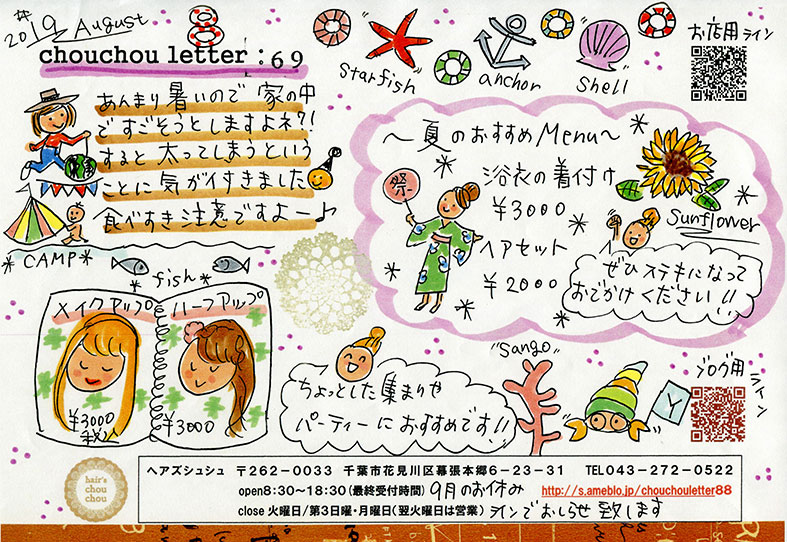 #2019 August
chouchou letter : 69
あんまり暑いので 家の中
ですごそうとしますよネ?!
すると太ってしまうという
ことに気が付きました
食べすぎ注意ですよー♪
*CAMP*
*fish*
メイクアップ
¥3000
ハーフアップ
¥3000
Starfish
anchor
Shell
お店用ライン
〜夏のおすすめMenu〜
祭
浴衣の着付け
¥3000
ヘアセット
¥2000
Sunflower
ぜひステキになって
おでかけください!!
ちょっとした集まりや
パーティーにおすすめです!!
"Sango"
ブログ用
ライン
hair's
chou
chou
ヘアズシュシュ 〒262-0033 千葉市花見川区幕張本郷6-23-31 TEL043-272-0522
open8:30~18:30(最終受付時間) 9月のお休み http://s.ameblo.jp/chouchouletter88
close 火曜日/第3日曜・月曜日(翌火曜日は営業) ラインでおしらせ致します